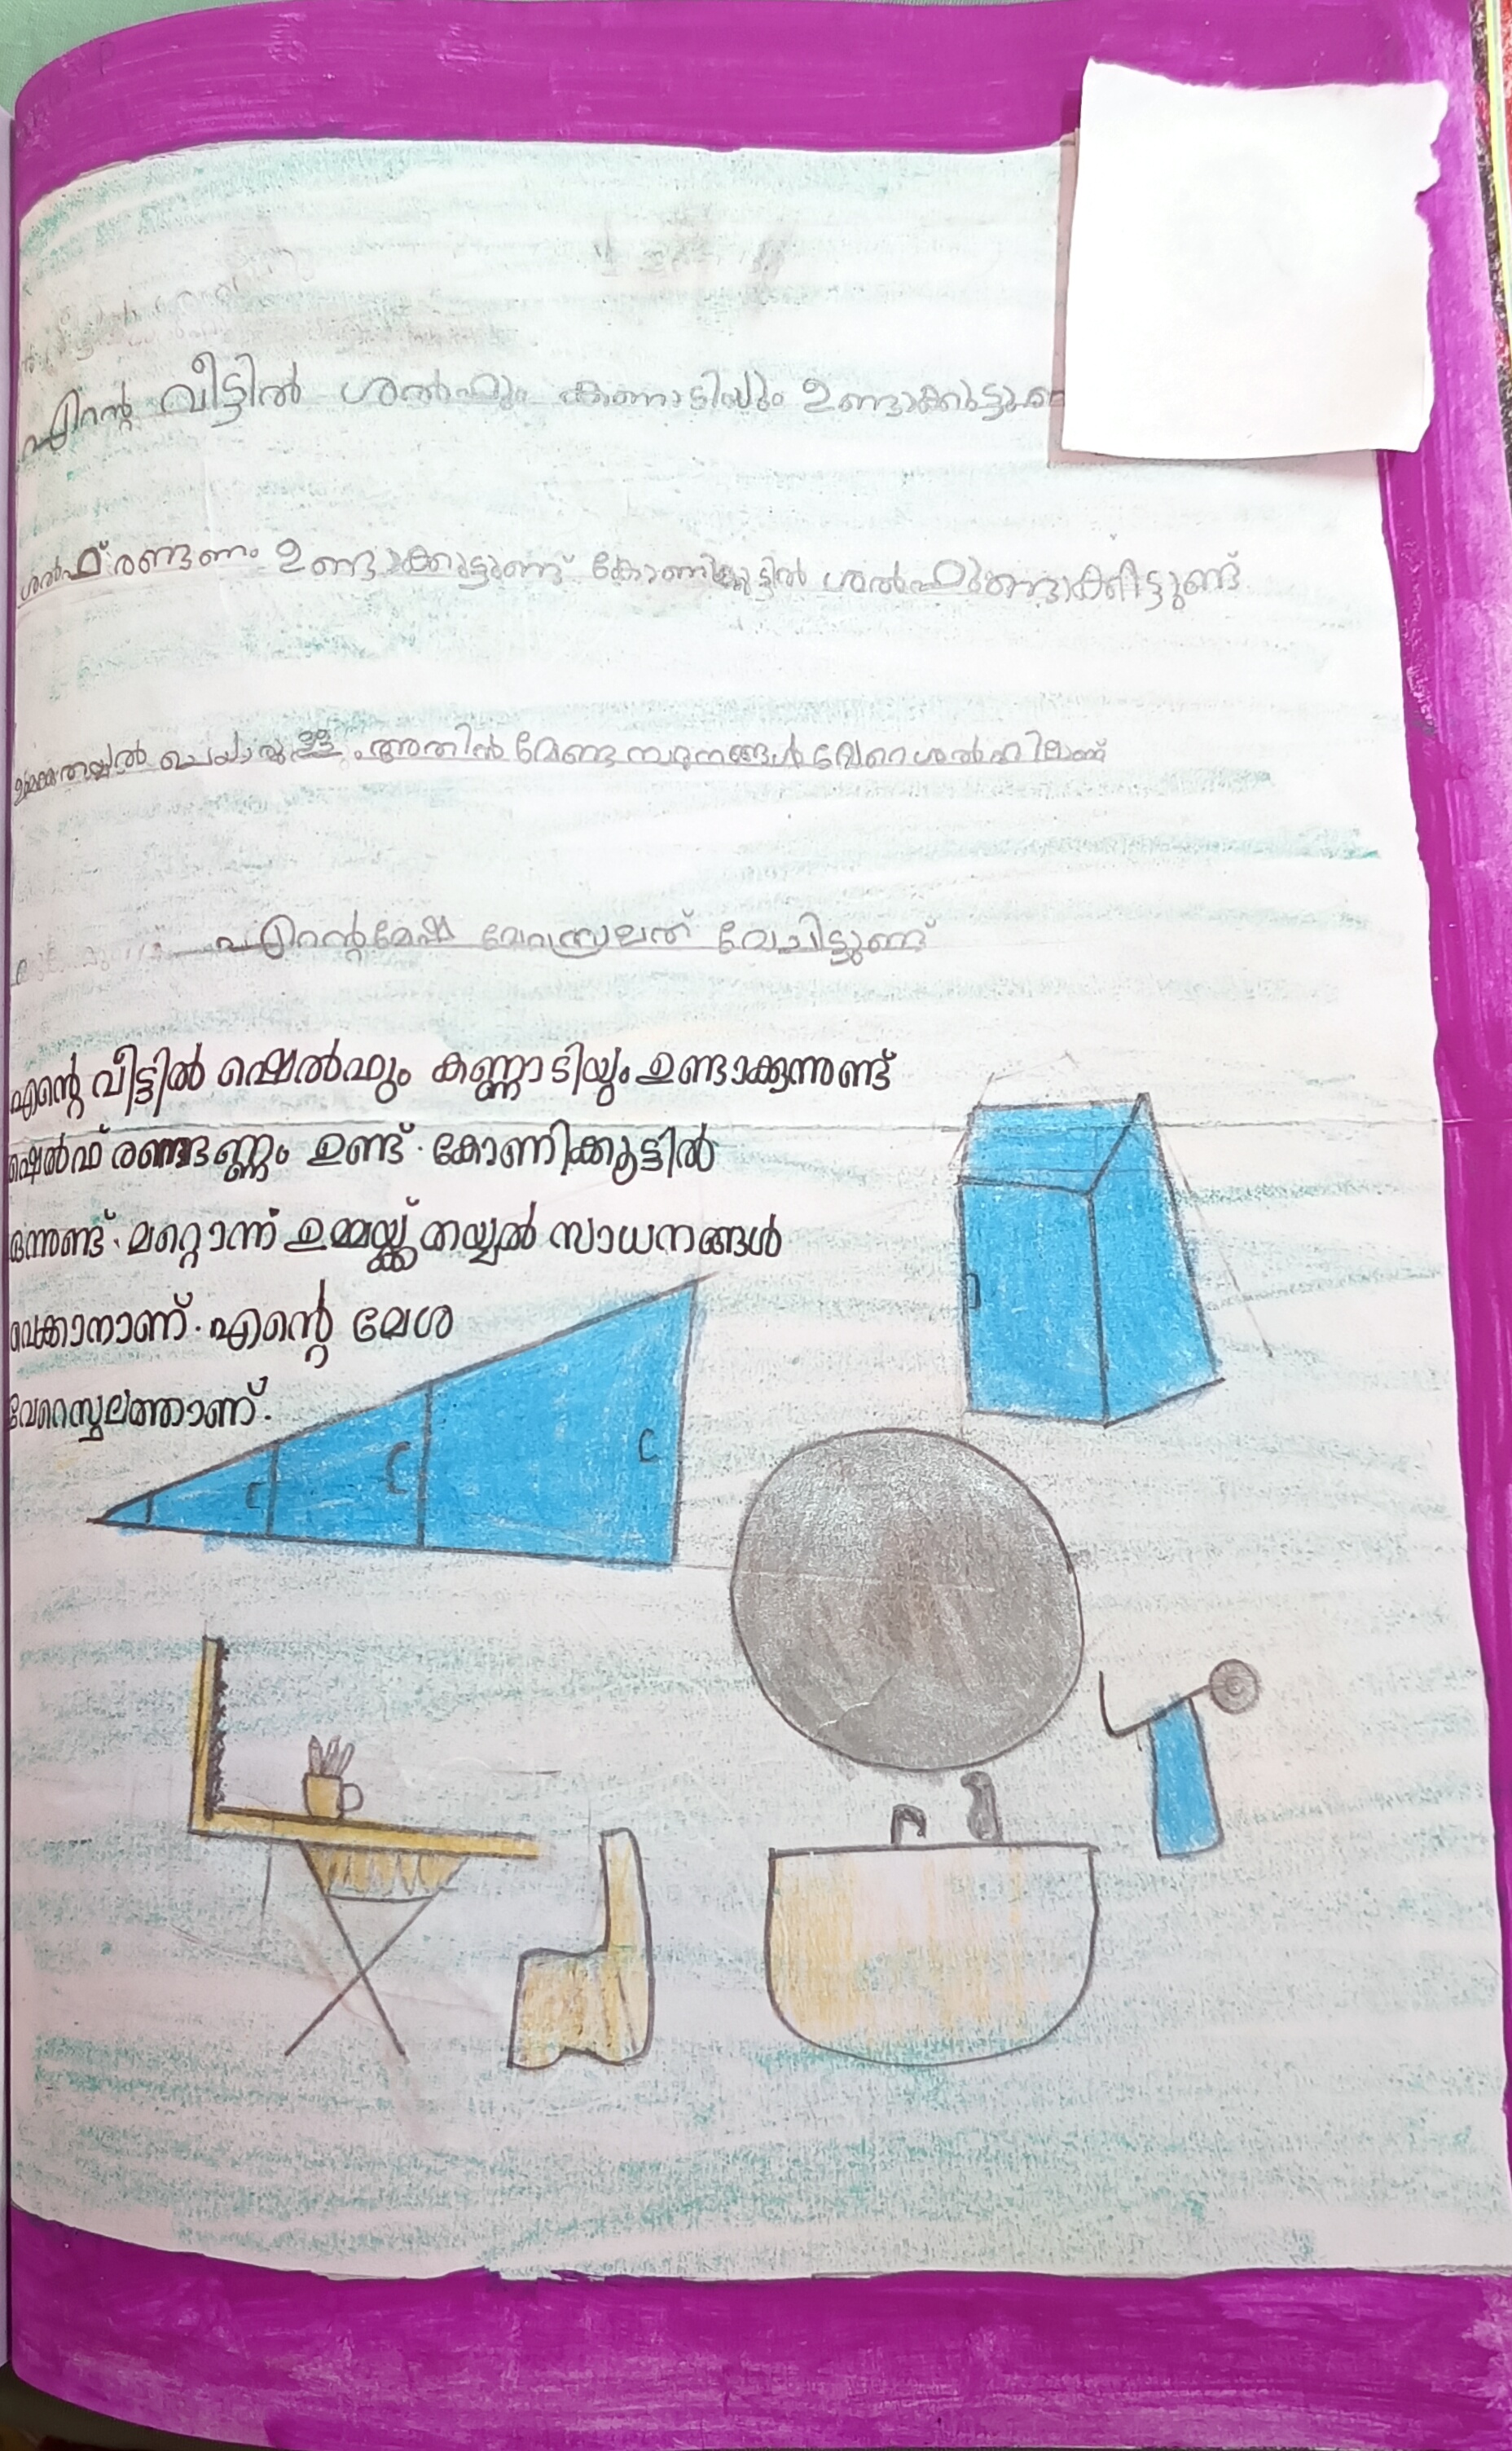 എന്റെ വീട്ടിൽ ശൽഫും കണ്ണാടിയും ഉണ്ടാക്കുട്ടുണ്ട
ശൽഫ് രണ്ടണം ഉണ്ടാക്കുട്ടുണ്ട് കോണിക്കുട്ടിൽ ശൽഫുണ്ടാക്കീട്ടുണ്ട്
തയ്യൽ ചെയ്യാരുള്ള അതിൻ വേണ്ട വേറെ ശൽഫിലാണ്
എന്റെ മേഷ വേറസ്ലത് വേചിട്ടുണ്ട്
എന്റെ വീട്ടിൽ ഷെൽഫും കണ്ണാടിയും ഉണ്ടാക്കുന്നുണ്ട്
ഷെൽഫ് രണ്ടെണ്ണം ഉണ്ട്. കോണിക്കൂട്ടിൽ
ഒന്നുണ്ട്. മറ്റൊന്ന് ഉമ്മയ്ക്ക് തയ്യൽ സാധനങ്ങൾ
വെക്കാനാണ്. എന്റെ മേശ
വേറെസ്ഥലത്താണ്.